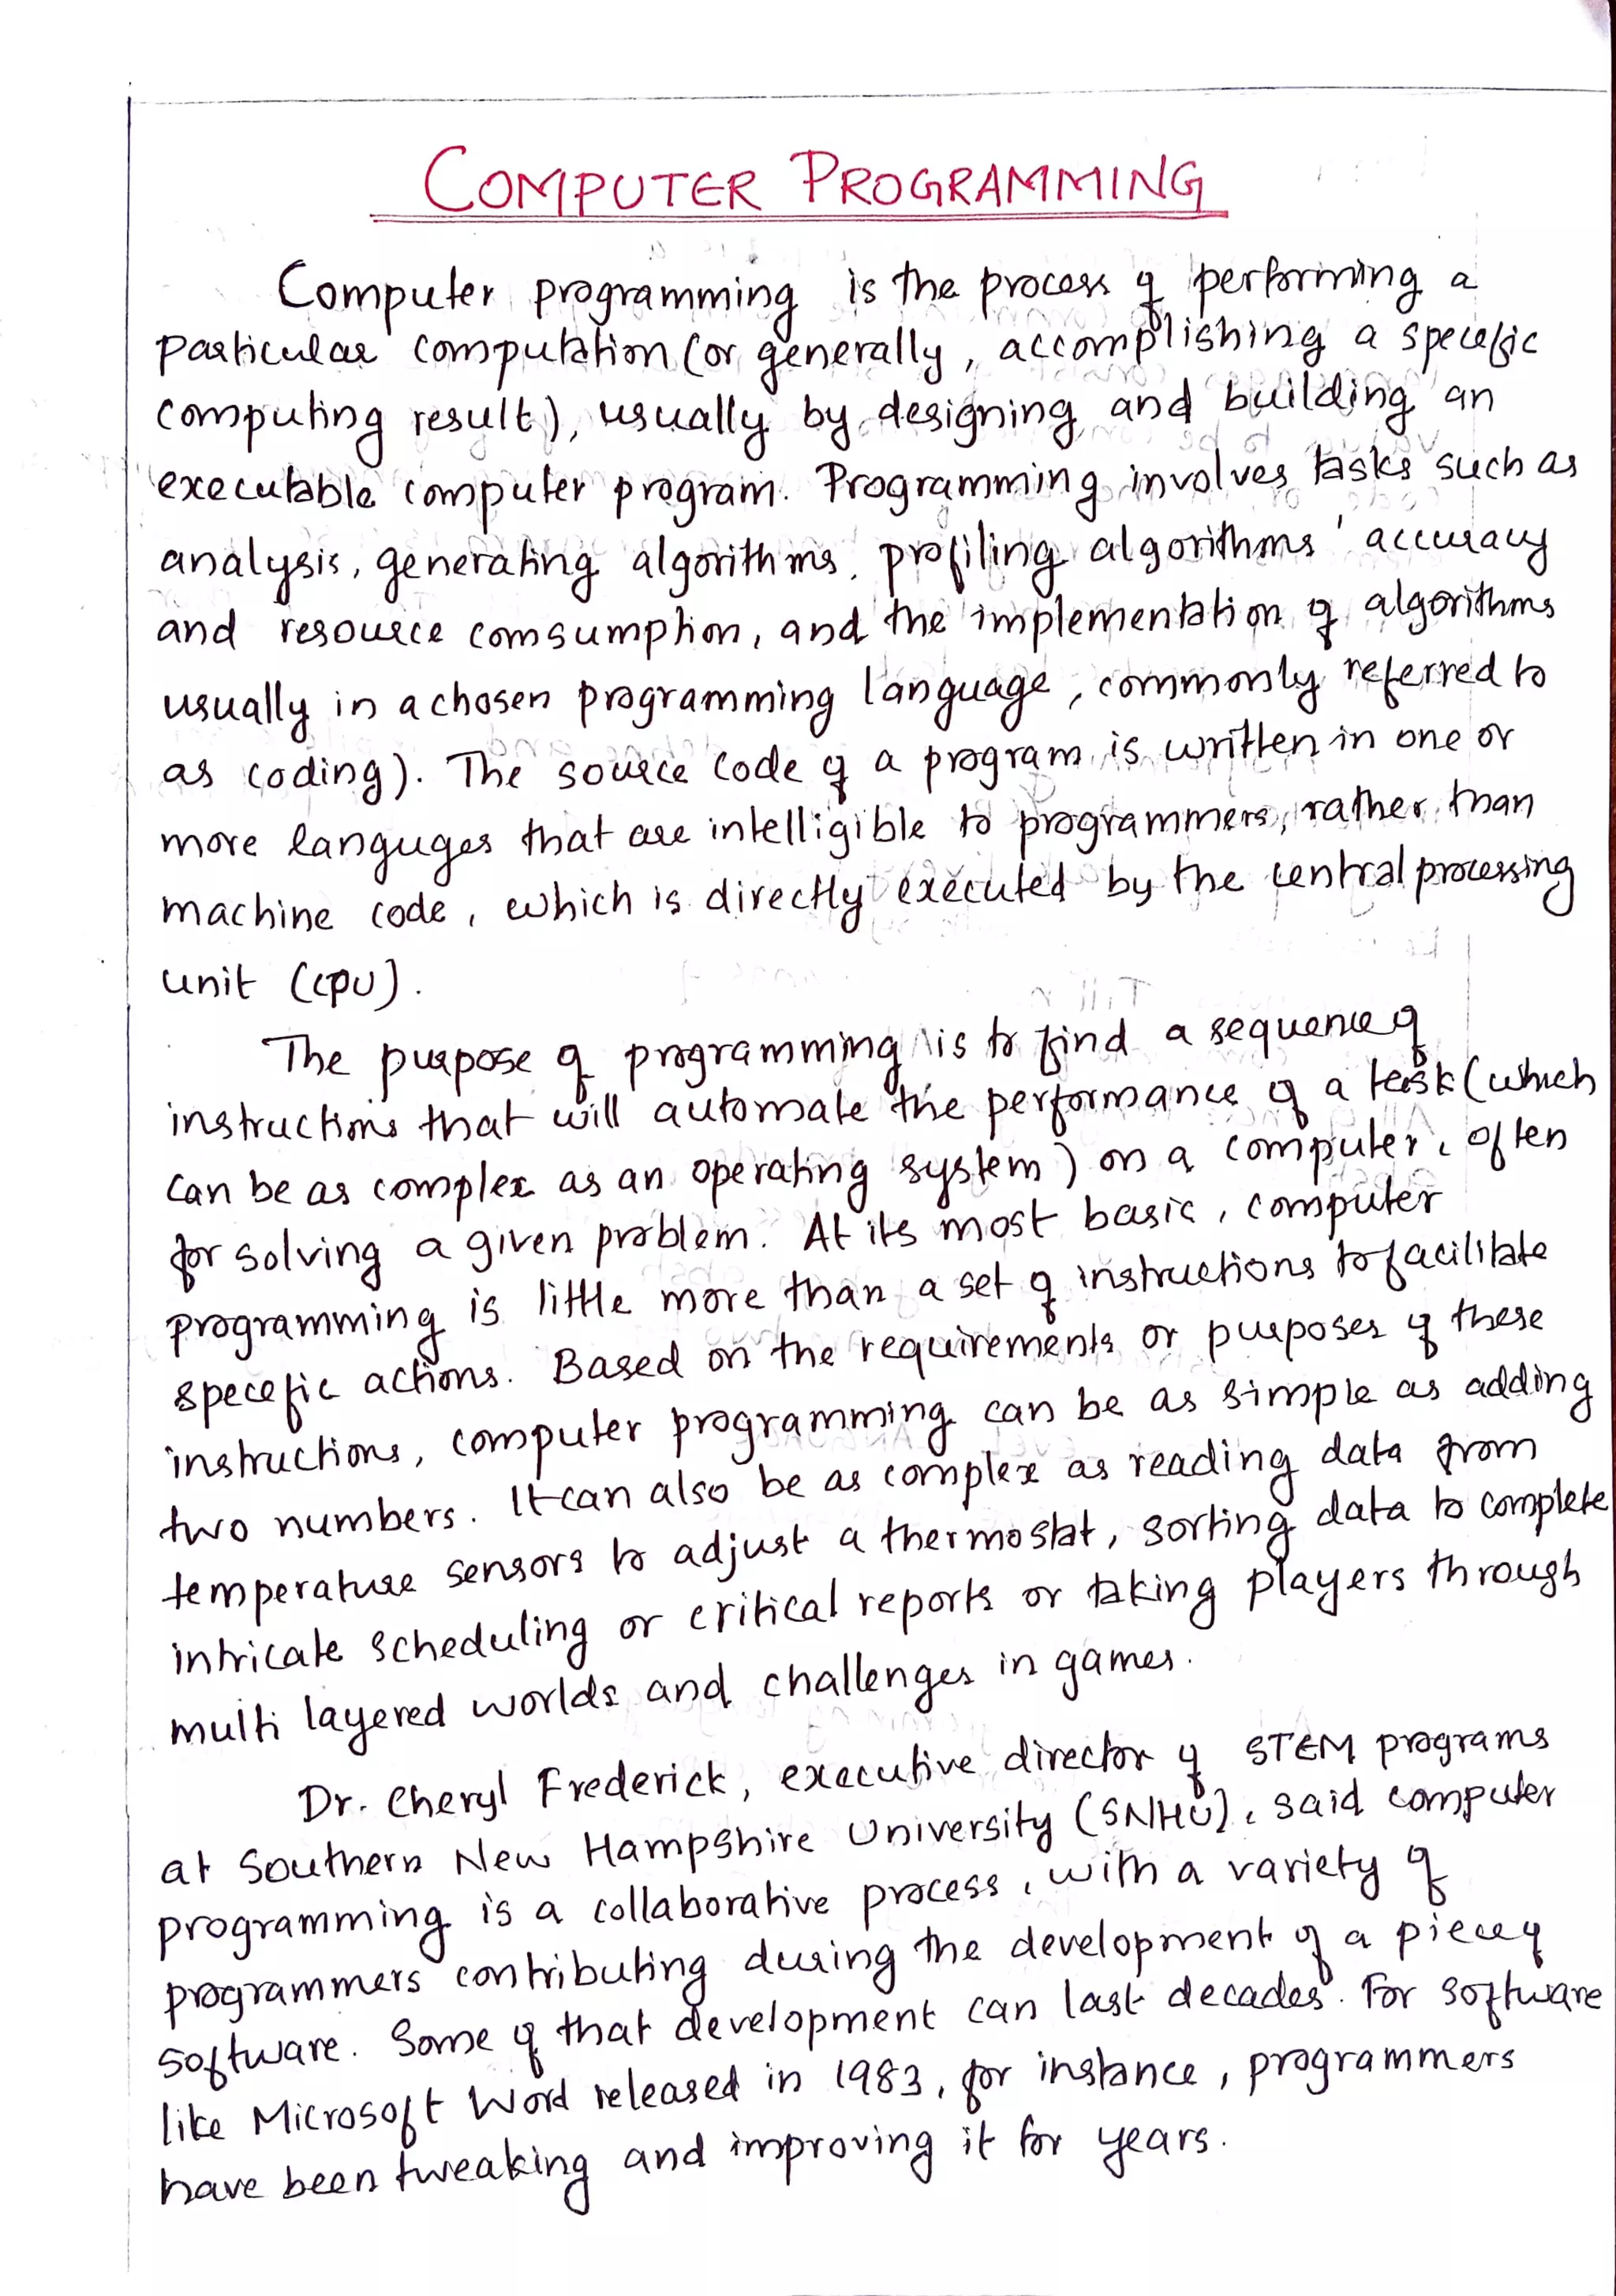 COMPUTER PROGRAMMING
Computer programming is the process of performing a
particular computation (or generally, accomplishing a specefic
computing result), usually by designing and building an
executable computer program. Programming involves tasks such as
analysis, generating algorithms, profiling algorithms' accuracy
and resource comsumption, and the implementation of algorithms
usually in a chosen programming language, commonly referred to
as coding). The source code of a program is written in one or
more languges that are intelligible to programmers, rather than
machine code, which is directly executed by the central processing
unit (CPU).
The purpose of programming is to find a sequence of
instructions that will automate the performance of a task (which
can be as complex as an operating system) on a computer, often
for solving a given problem. At its most basic, computer
programming is little more than a set of instructions to facilitate
specefic actions. Based on the requirements or purposes of these
instructions, computer programming can be as simple as adding
two numbers. It can also be as complex as reading data from
temperature sensors to adjust a thermostat, sorting data to complete
intricate scheduling or critical reports or taking players through
multi layered worlds and challenges in games.
Dr. Cheryl Frederick, executive director of STEM programs
at Southern New Hampshire University (SNHU), said computer
programming is a collaborative process, with a variety of
programmers contributing during the development of a piece of
software. Some of that development can last decades. For software
like Microsoft Word released in 1983, for instance, programmers
have been tweaking and improving it for years.